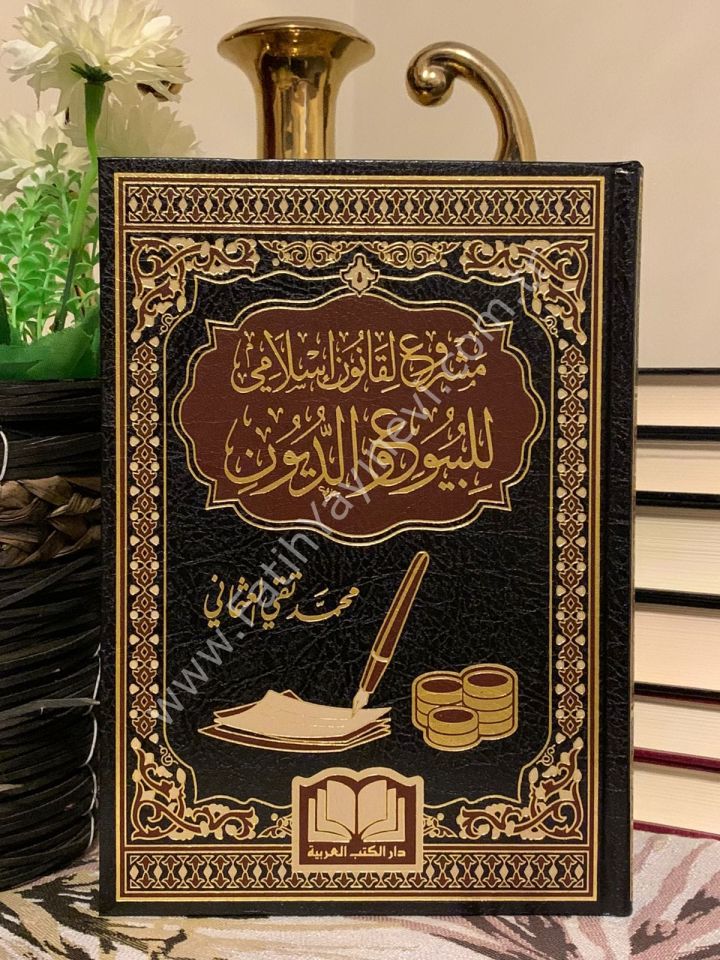 مشروع لقانون إسلامي
للبيوع والديون
محمد تقي العثماني
دار الكتب العربية
www.FatihYayinevi.com.tr